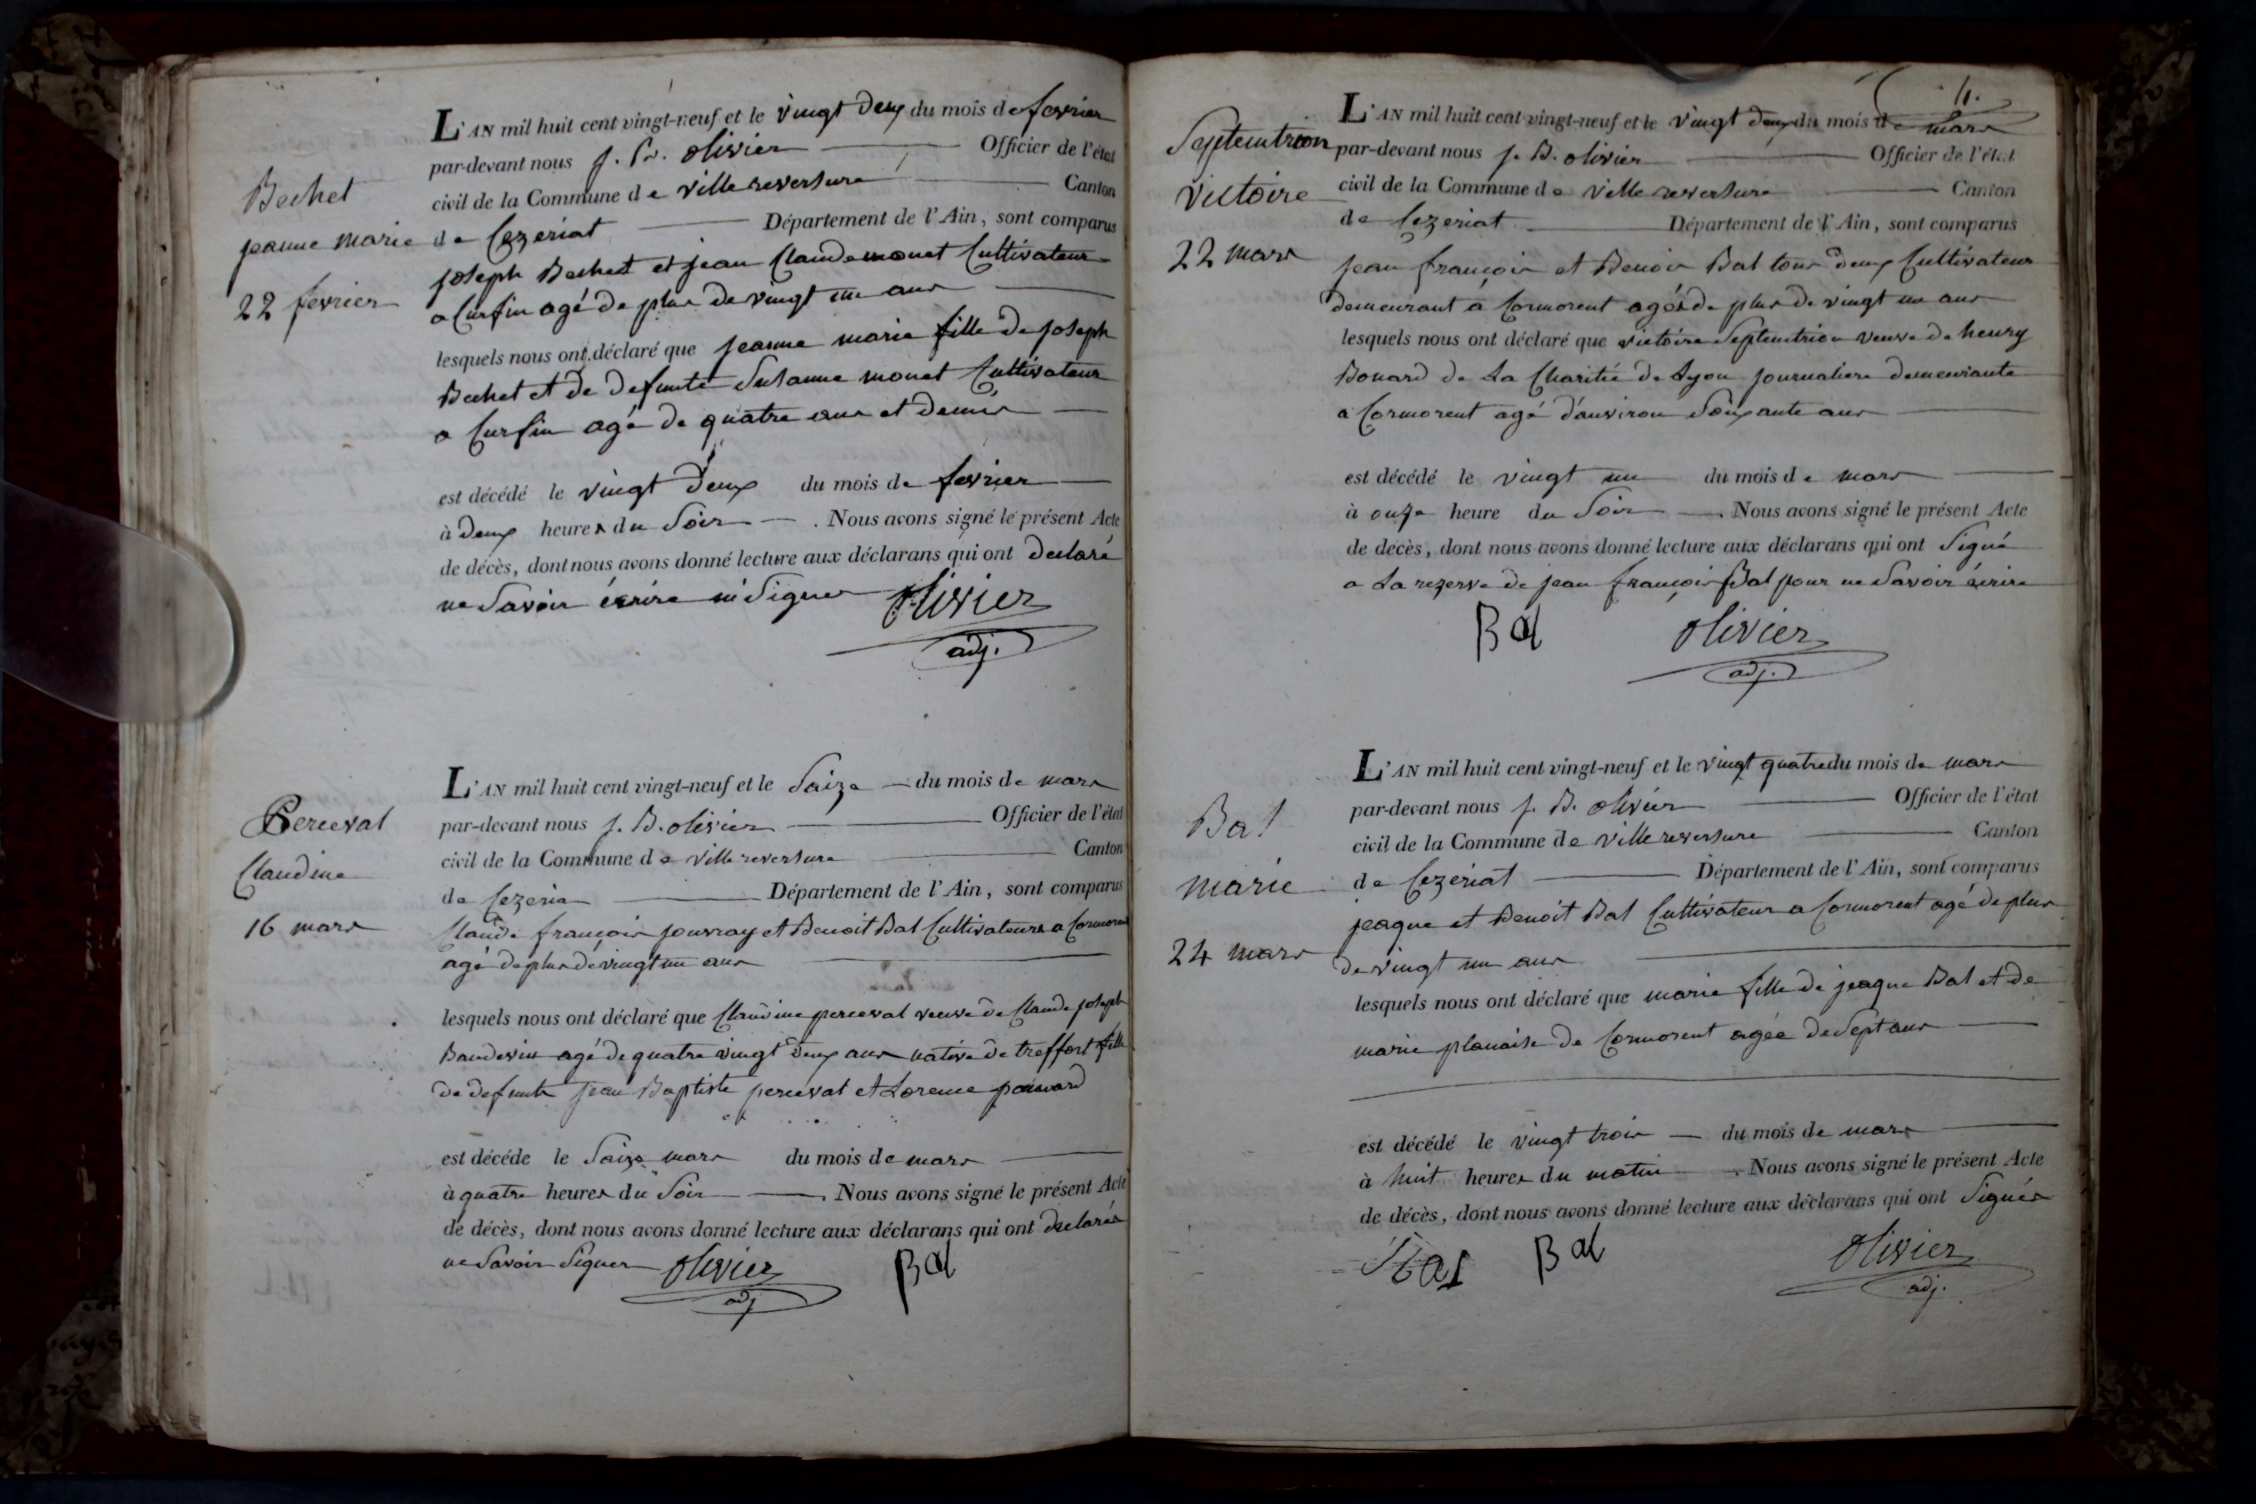 Bechet
jeanne marie
22 fevrier
L'AN mil huit cent vingt-neuf et le vingt deux du mois de fevrier
par-devant nous j. B. olivier Officier de l'état
civil de la Commune de ville reversure Canton
de Cezeriat Département de l'Ain, sont comparus
joseph Bechet et jean Claude monet Cultivateur
a Curfin agé de plus de vingt un ans
lesquels nous ont déclaré que jeanne marie fille de joseph
Bechet et de defunte Susanne monet Cultivateur
a Curfin agé de quatre ans et demis
est décédé le vingt deux du mois de fevrier
à deux heures du Soir . Nous avons signé le présent Acte
de décès, dont nous avons donné lecture aux déclarans qui ont declaré
ne Savoir écrire ni Signer olivier
adj.
Perceval
Claudine
16 mars
L'AN mil huit cent vingt-neuf et le Saize du mois de mars
par-devant nous j. B. olivier Officier de l'état
civil de la Commune de ville reversure Canton
de Cezeria Département de l'Ain, sont comparus
Claude françois jouvray et Benoit Bal Cultivateurs a Cormorent
agé de plus de vingt un ans
lesquels nous ont déclaré que Claudine perceval veuve de Claude joseph
Baudevin agé de quatre vingt deux ans native de treffort fille
de defunts jean Baptiste perceval et Lorence
est décédé le Saize mars du mois de mars
à quatre heures du Soir . Nous avons signé le présent Acte
de décès, dont nous avons donné lecture aux déclarans qui ont declarés
ne Savoir Signer olivier Bal
adj
4.
Septemtrion
victoire
22 mars
L'AN mil huit cent vingt-neuf et le vingt deux du mois de mars
par-devant nous j. B. olivier Officier de l'état
civil de la Commune de ville reversure Canton
de Cezeriat Département de l'Ain, sont comparus
jean françois et Benoit Bal tous deux Cultivateur
demeurant à Cormorent agés de plus de vingt un ans
lesquels nous ont déclaré que victoire Septemtrion veuve de henry
Bonard de La Charitié de Lyon journaliere demeurante
a Cormorent agé d'anviron Soixante ans
est décédé le vingt un du mois de mars
à onze heure du Soir . Nous avons signé le présent Acte
de décès, dont nous avons donné lecture aux déclarans qui ont Signé
a La rezerve de jean françois Bal pour ne Savoir écrire
Bal olivier
adj.
Bal
marie
24 mars
L'AN mil huit cent vingt-neuf et le vingt quatre du mois de mars
par-devant nous j. B. olivier Officier de l'état
civil de la Commune de ville reversure Canton
de Cezeriat Département de l'Ain, sont comparus
jeaque et Benoit Bal Cultivateur a Cormorent agé de plus
de vingt un ans
lesquels nous ont déclaré que marie fille de jeaque Bal et de
marie planaise de Cormorent agée de Sept ans
est décédé le vingt trois du mois de mars
à huit heures du matin . Nous avons signé le présent Acte
de décès, dont nous avons donné lecture aux déclarans qui ont Signés
Bal Bal olivier
adj.